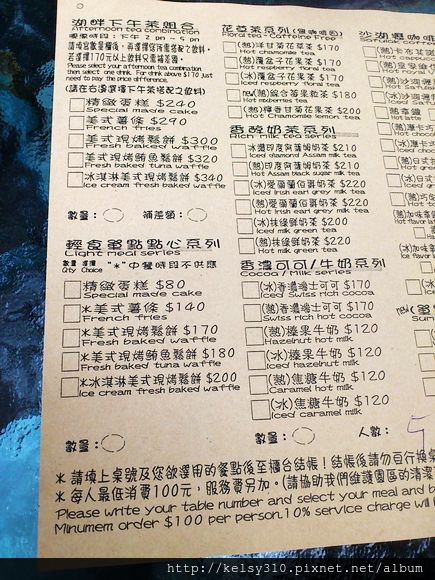 湖畔下午茶組合
Afternoon tea combination
下午 2 pm - 5 pm
Please select your afternoon tea combination,
then select one drink. For drink above $170 just
need to pay the price difference.
(請在右邊選擇下午茶搭配之飲料)
精緻蛋糕 $240
Special made cake
美式薯條 $290
French fries
美式現烤鬆餅 $300
Fresh baked waffle
美式現烤鮪魚鬆餅 $320
Fresh baked tuna waffle
冰淇淋美式現烤鬆餅 $340
Ice cream fresh baked waffle
數量:
補差額:
輕食單點點心系列
Light meal series
數量 選擇 "*"中餐時段不供應
Qty Choice
精緻蛋糕 $80
Special made cake
*美式薯條 $140
French fries
*美式現烤鬆餅 $170
Fresh baked waffle
*美式現烤鮪魚鬆餅 $180
Fresh baked tuna waffle
*冰淇淋美式現烤鬆餅 $200
Ice cream fresh baked waffle
數量:
花草茶系列(無咖啡因)
Floral tea - Caffeine Free
(熱)洋甘菊花草茶 $170
Hot chamomile tea
(熱)覆盆子花果茶 $170
Hot raspberry tea
(冰)覆盆子花果茶 $180
Iced raspberry tea
new(熱)綜合莓果粒茶 $180
Hot mixberries tea
(熱)檸香甘菊花果茶 $200
Hot Chamomile lemon tea
香濃奶茶系列
Rich milk tea series
冰鑽印度阿薩姆奶茶 $210
Iced diamond Assam milk tea
(熱)印度阿薩姆奶茶 $210
Hot Assam black sugar milk tea
(冰)愛爾蘭伯爵奶茶 $220
Iced Irish earl grey milk tea
(熱)愛爾蘭伯爵奶茶 $220
Hot Irish earl grey milk tea
(冰)抹綠鮮奶茶 $220
Iced milk green tea
(熱)抹綠鮮奶茶 $220
Hot milk green tea
香濃可可/牛奶系列
Cocoa / Milk series
(冰)香濃瑞士可可 $170
Iced Swiss rich cocoa
(熱)香濃瑞士可可 $170
Swiss rich hot cocoa
(熱)榛果牛奶 $120
Hazelnut hot milk
(冰)榛果牛奶 $120
Iced hazelnut milk
(熱)焦糖牛奶 $120
Caramel hot milk
(冰)焦糖牛奶 $120
Iced caramel milk
數量:
人數:
* 請填上桌號及您欲選用的餐點後至櫃台結帳!結帳後請勿自行換桌
* 每人最低消費100元,服務費另加。(請協助我們維護園區的清潔
Please write your table number and select your meal and b
Minumem order $100 per person.10% service charge will
http://kelsy310.pixnet.net/album